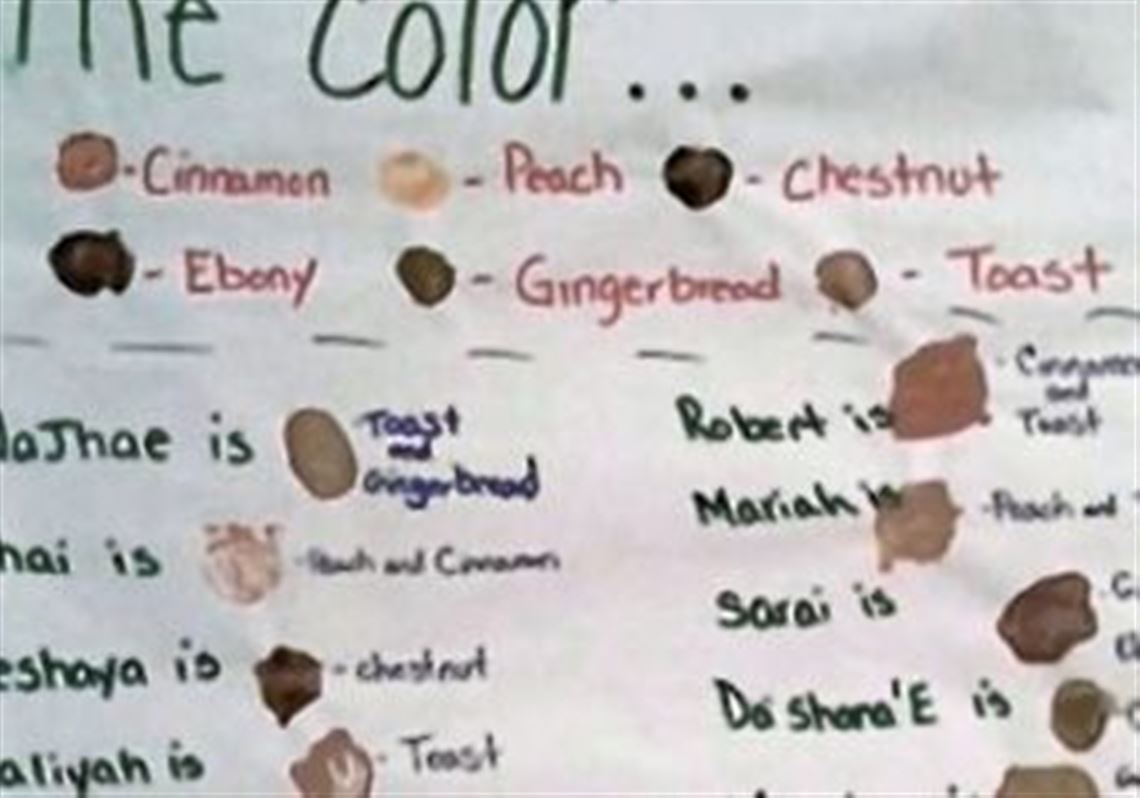 The Color...
- Cinnamon - Peach - Chestnut
- Ebony - Gingerbread - Toast
aJhae is Toast and Gingerbread
hai is - Peach and Cinnamon
eshaya is - chestnut
aliyah is - Toast
Robert is - Cinnamon and Toast
Mariah is - Peach and
Sarai is
Da'shana'E is